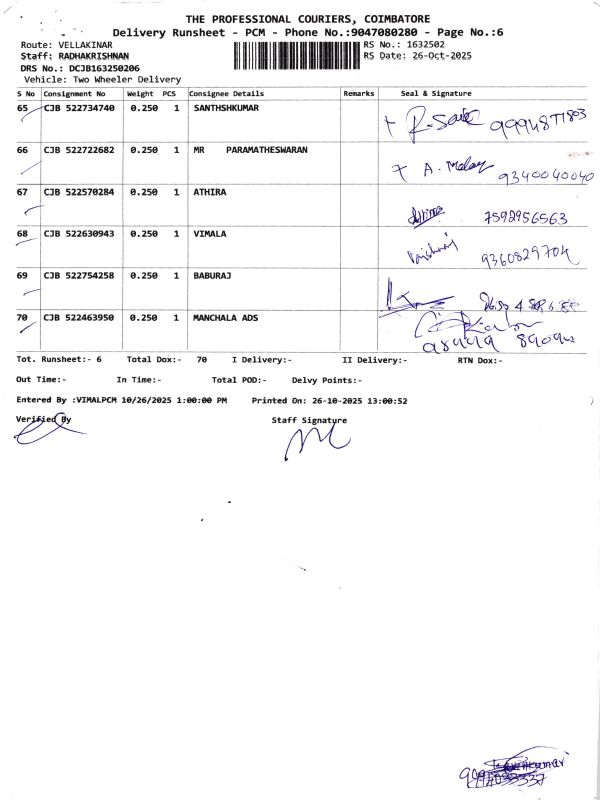 THE PROFESSIONAL COURIERS, COIMBATORE
Delivery Runsheet - PCM - Phone No.:9047080280 - Page No.:6
Route: VELLAKINAR RS No.: 1632502
Staff: RADHAKRISHNAN RS Date: 26-Oct-2025
DRS No.: DCJB163250206
Vehicle: Two Wheeler Delivery
S No Consignment No Weight PCS Consignee Details Remarks Seal & Signature
65 CJB 522734740 0.250 1 SANTHSHKUMAR
66 CJB 522722682 0.250 1 MR PARAMATHESWARAN
9340040040
67 CJB 522570284 0.250 1 ATHIRA
7592956563
68 CJB 522630943 0.250 1 VIMALA
9360829704
69 CJB 522754258 0.250 1 BABURAJ
70 CJB 522463950 0.250 1 MANCHALA ADS
Tot. Runsheet:- 6 Total Dox:- 70 I Delivery:- II Delivery:- RTN Dox:-
Out Time:- In Time:- Total POD:- Delvy Points:-
Entered By :VIMALPCM 10/26/2025 1:00:00 PM Printed On: 26-10-2025 13:00:52
Verified By Staff Signature